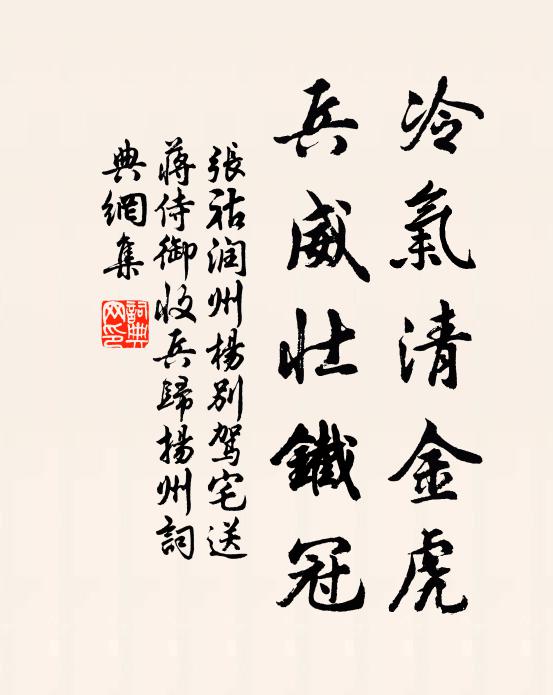 冷氣清金虎
兵威壯鐵冠
張祜潤州楊別駕宅送
蔣侍御收兵歸揚州詞
典網集
詞典網印